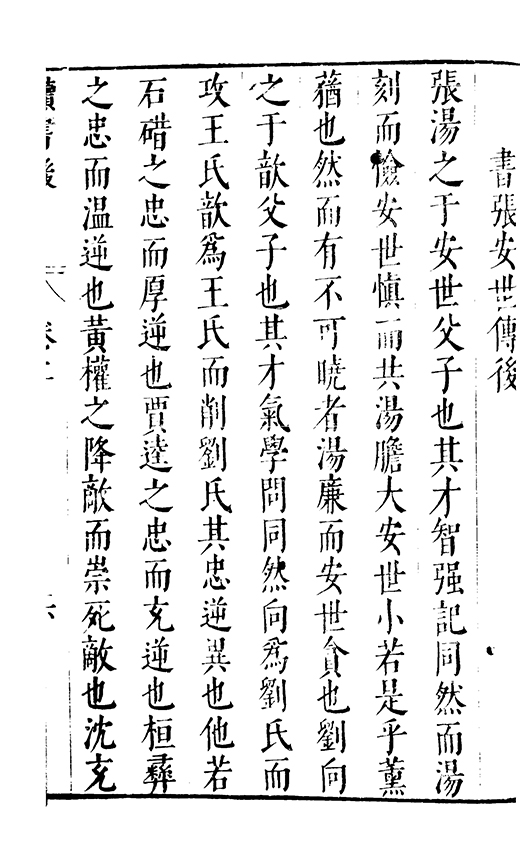 書張安世傳後
張湯之于安世父子也其才智强記同然而湯
刻而憸安世愼而共湯膽大安世小若是乎薰
蕕也然而有不可曉者湯廉而安世貪也劉向
之于歆父子也其才氣學問同然向爲劉氏而
攻王氏歆爲王氏而削劉氏其忠逆異也他若
石碏之忠而厚逆也賈逵之忠而充逆也桓彝
之忠而温逆也黃權之降敵而崇死敵也沈充
讀書後
卷二
六